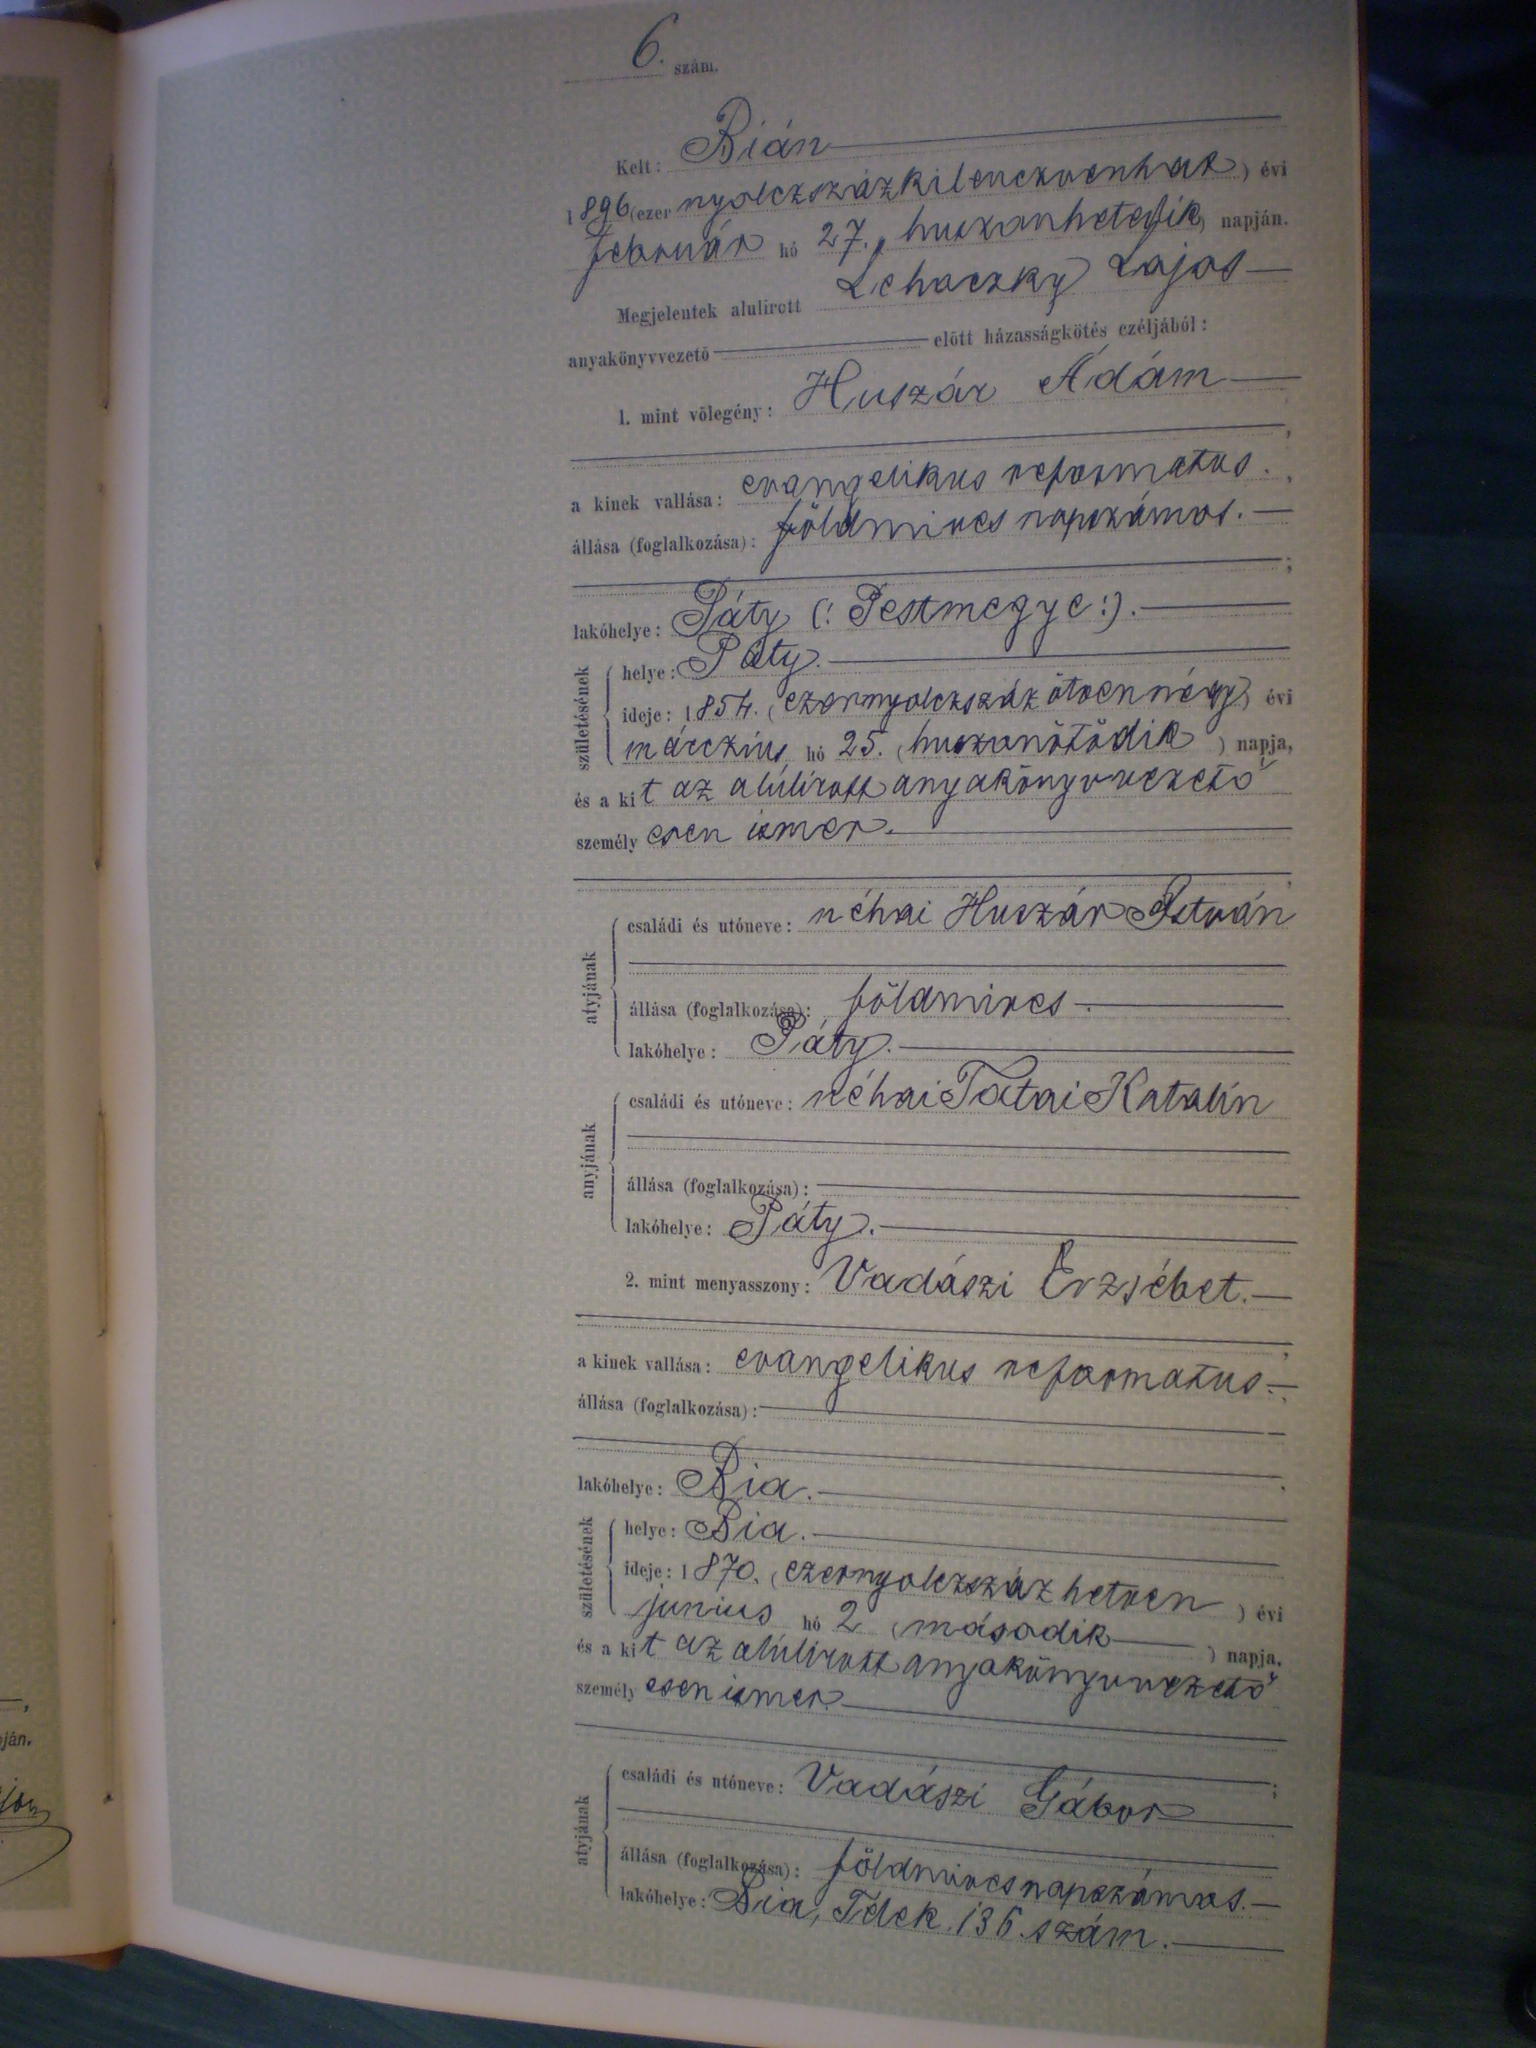 6. szám.
Kelt: Bián
1896 (ezer nyolczszázkilenczvenhat) évi
február hó 27. (huszonhetedik) napján.
Megjelentek alulirott Lehoczky Lajos
anyakönyvvezető előtt házasságkötés czéljából:
1. mint vőlegény: Huszár Ádám
a kinek vallása: evangelikus reformatus.
állása (foglalkozása): földmíves napszámos.
lakóhelye: Páty (: Pestmegye :).
születésének helye: Páty.
ideje: 1854. (ezernyolczszázötvennégy) évi
márczius hó 25. (huszonötödik) napja,
és a kit az alúlírott anyakönyvvezető
személyesen ismer.
atyjának családi és utóneve: néhai Huszár István
állása (foglalkozása): földmíves.
lakóhelye: Páty.
anyjának családi és utóneve: néhai Tatai Katalin
állása (foglalkozása):
lakóhelye: Páty.
2. mint menyasszony: Vadászi Erzsébet.
a kinek vallása: evangelikus reformatus.
állása (foglalkozása):
lakóhelye: Bia.
születésének helye: Bia.
ideje: 1870. (ezernyolczszázhetven) évi
junius hó 2 (második) napja,
és a kit az alúlírott anyakönyvvezető
személyesen ismer
atyjának családi és utóneve: Vadászi Gábor
állása (foglalkozása): földmívesnapszámos.
lakóhelye: Bia, Telek 136. szám.
ján.